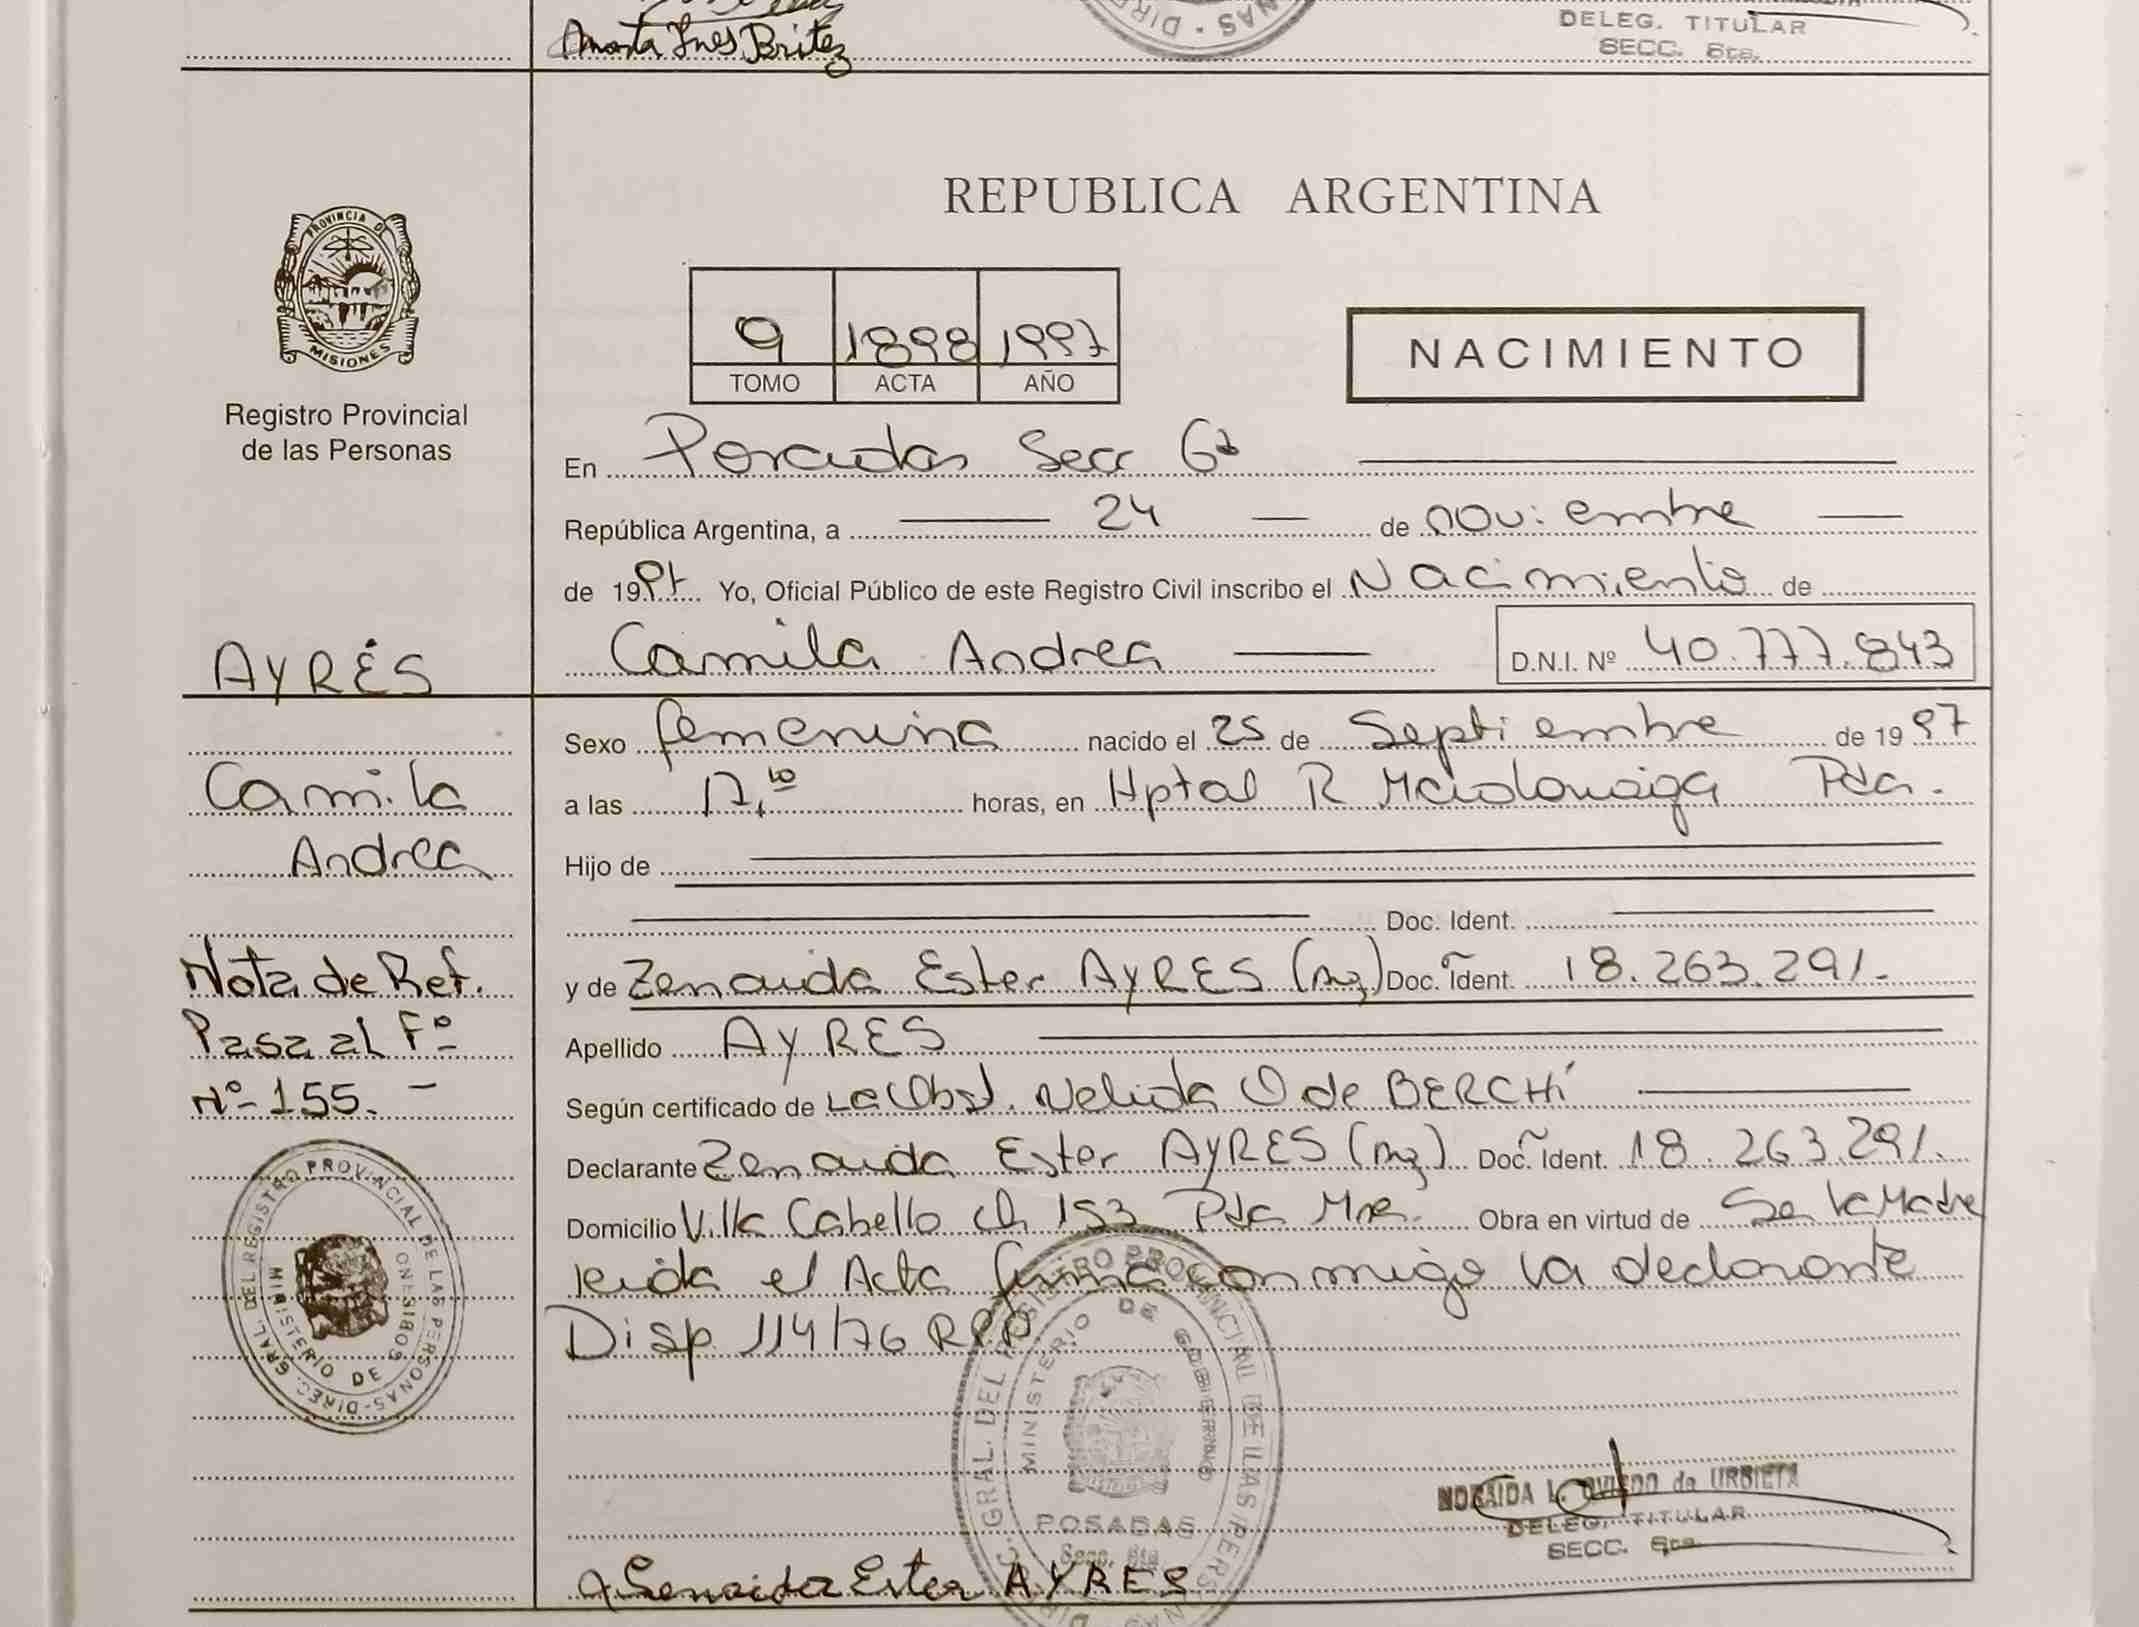 Marta Ines Britez
DELEG. TITULAR
SECC. 6ta.
PROVINCIA DE
MISIONES
Registro Provincial
de las Personas
REPUBLICA ARGENTINA
9 1898 1997
TOMO ACTA AÑO
NACIMIENTO
En Posadas Secc 6ª
República Argentina, a 24 de noviembre
de 1997 Yo, Oficial Público de este Registro Civil inscribo el Nacimiento de
Camila Andrea D.N.I. Nº 40.777.843
AYRES
Camila
Andrea
Nota de Ref.
Pasa al Fº
Nº 155.-
Sexo femenina nacido el 25 de Septiembre de 1997
a las 17,10 horas, en Hptal R Madariaga Pdas.
Hijo de
Doc. Ident.
y de Zenaida Ester AYRES (Arg) Doc. Ident. 18.263.291.
Apellido AYRES
Según certificado de La Obst. Nelida O de BERCHI
Declarante Zenaida Ester AYRES (Arg) Doc. Ident. 18.263.291.
Domicilio Villa Cabello ch 153 Pdas Mnes. Obra en virtud de Ser la Madre
leida el Acta firma conmigo la declarante
Disp. 114/76 RPP
DIREC. GRAL. DEL REGISTRO PROVINCIAL DE LAS PERSONAS
MINISTERIO DE GOBIERNO
DIREC. GRAL. DEL REGISTRO PROVINCIAL DE LAS PERSONAS
MINISTERIO DE GOBIERNO
POSADAS
Secc. 6ta.
NORAIDA L. OVIEDO de URBIETA
DELEG. TITULAR
SECC. 6ta.
Senaida Ester AYRES